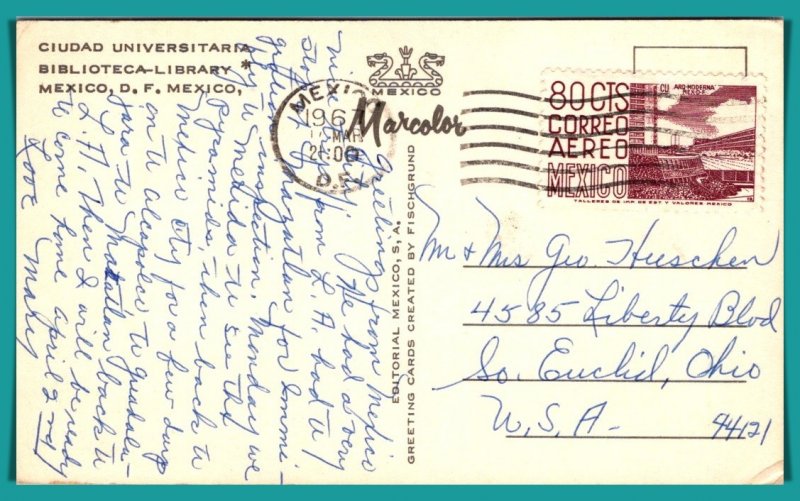 CIUDAD UNIVERSITARIA
BIBLIOTECA-LIBRARY *
MEXICO, D. F. MEXICO,
MEXICO
Marcolor
MEXICO
196
12 MAR
D.F.
80 CTS
CORREO
AEREO
MEXICO
CU ARQ-MODERNA
MEX D.F.
TALLERES DE IMP. DE EST. Y VALORES-MEXICO
EDITORIAL MEXICO, S. A.
GREETING CARDS CREATED BY FISCHGRUND
Greetings from Mexico
We had a very
nice from L. A. had to
stop at Mazatlan for Immi-
gration
inspection. Monday we
go to Merida to see the
Pyramids - then back to
Mexico City for a few days
on to Alcapulco to Guadala-
jara to Matatlan back to
L. A. Then I will be ready
to come home April 2nd
Love Mary
Mr & Mrs Geo. Hueschen
4585 Liberty Blvd
So. Euclid, Ohio
U. S. A -
44121